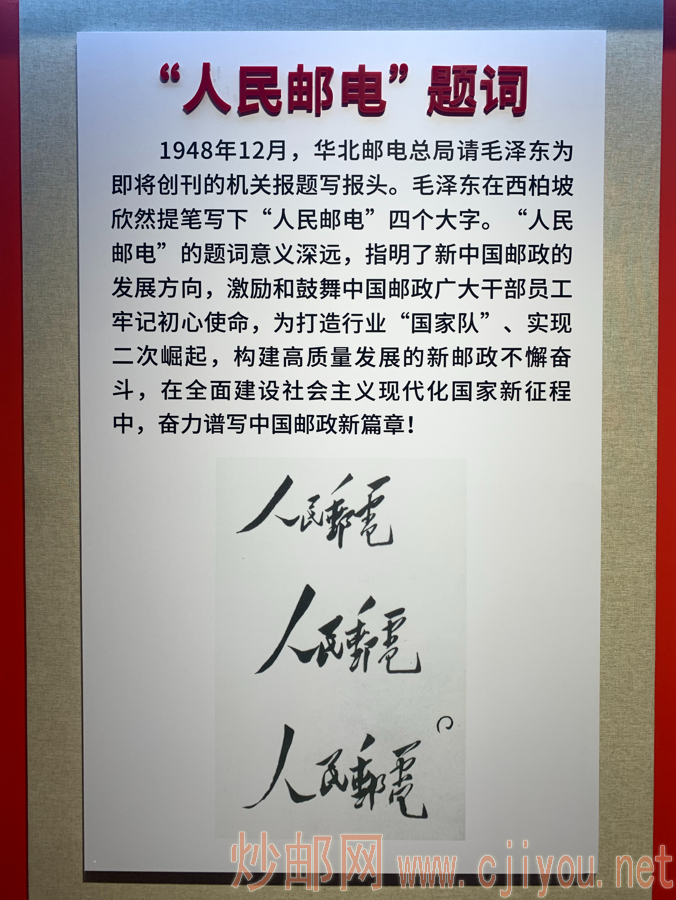 “人民邮电”题词
1948年12月，华北邮电总局请毛泽东为
即将创刊的机关报题写报头。毛泽东在西柏坡
欣然提笔写下“人民邮电”四个大字。“人民
邮电”的题词意义深远，指明了新中国邮政的
发展方向，激励和鼓舞中国邮政广大干部员工
牢记初心使命，为打造行业“国家队”、实现
二次崛起，构建高质量发展的新邮政不懈奋
斗，在全面建设社会主义现代化国家新征程
中，奋力谱写中国邮政新篇章！
人民郵電
人民郵電
人民郵電
炒邮网 www.cjiyou.net